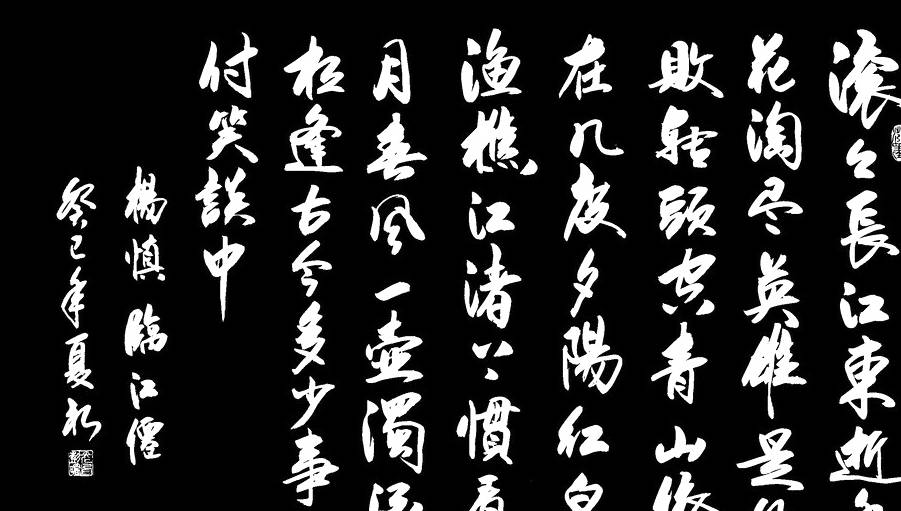 滚々長江東逝
花淘尽英雄是
敗轉頭空青山依
在几度夕陽红白
渔樵江渚上慣看
月春风一壺濁酒
相逢古今多少事
付笑談中
楊慎臨江僊
癸巳年夏